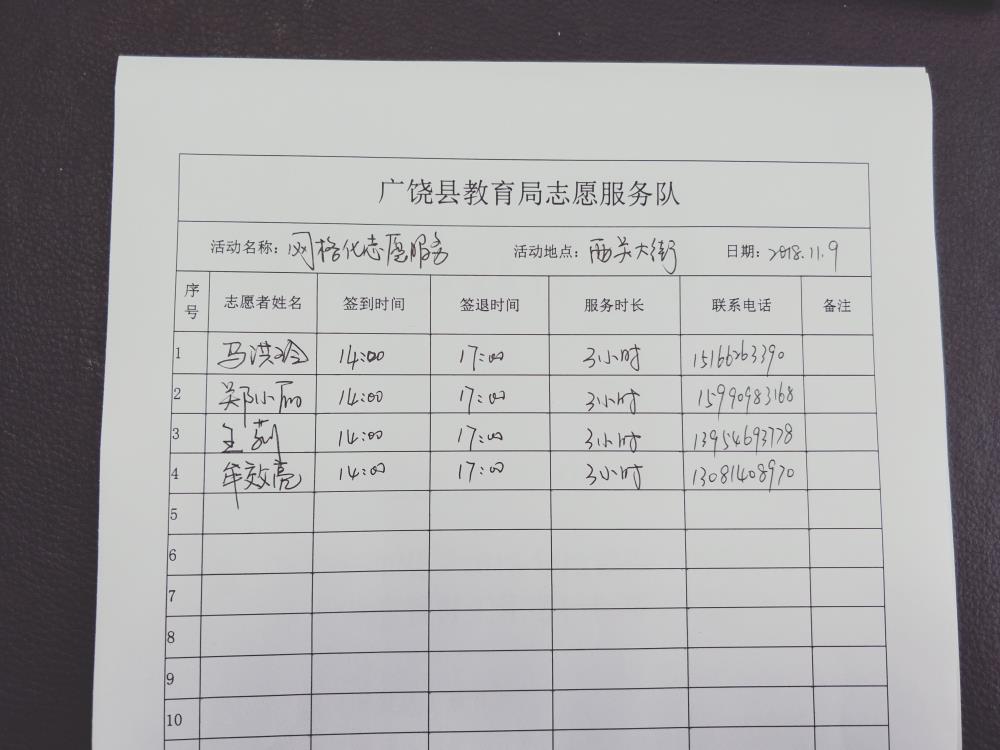 广饶县教育局志愿服务队
活动名称：网格化志愿服务 活动地点：西关大街 日期：2018.11.9
序号 志愿者姓名 签到时间 签退时间 服务时长 联系电话 备注
1 马洪玲 14:00 17:00 3小时 15166263390
2 郑小丽 14:00 17:00 3小时 15990983168
3 王莉 14:00 17:00 3小时 13954693778
4 牟效亮 14:00 17:00 3小时 13081408970
5
6
7
8
9
10